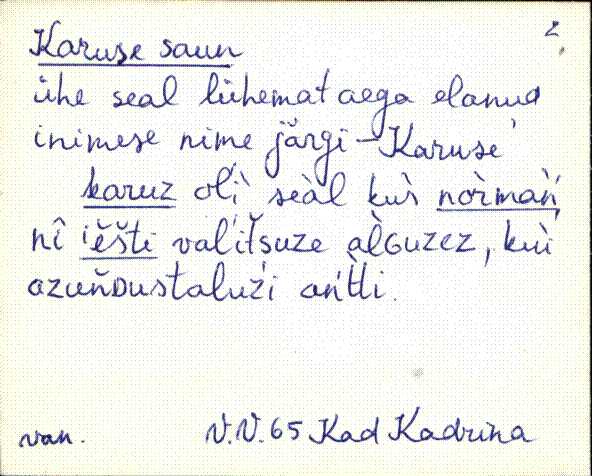 2
Karuse saun
ühe seal lühemat aega elanud
inimese nime järgi – Karuse
karuz oĺì seàl kuì normàń
nî iėšti valitšuze àlGuzez, kui
azuńDustaluži antti.
van. V.V. 65 Kad Kadrina